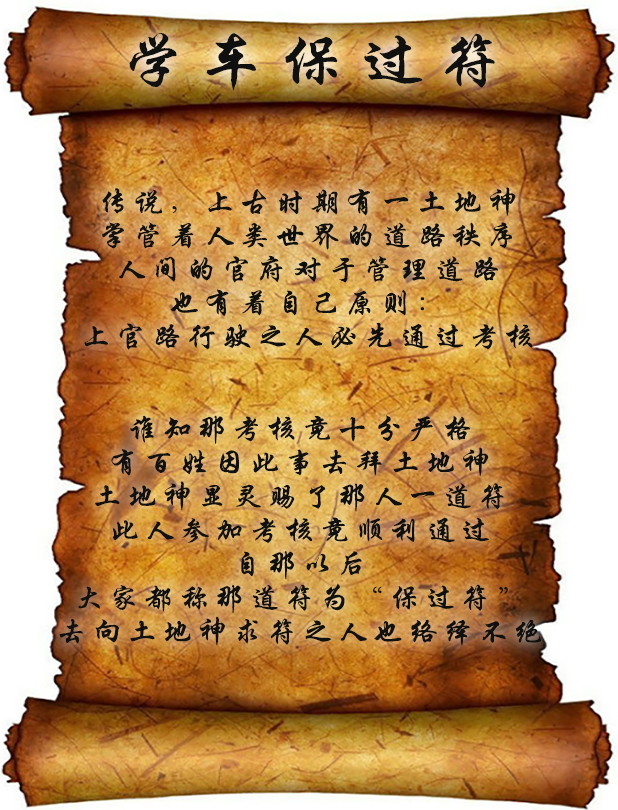 学车保过符
传说，上古时期有一土地神
掌管着人类世界的道路秩序
人间的官府对于管理道路
也有着自己原则：
上官路行驶之人必先通过考核
谁知那考核竟十分严格
有百姓因此事去拜土地神
土地神显灵赐了那人一道符
此人参加考核竟顺利通过
自那以后
大家都称那道符为“保过符”
去向土地神求符之人也络绎不绝